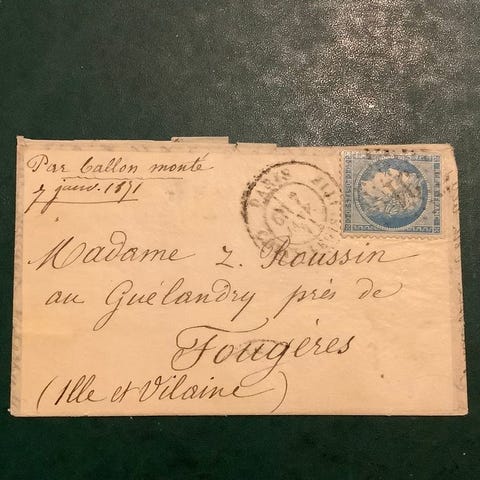 Par ballon monté
7 janv. 1871
PARIS
Madame Z. Roussin
au Guélandry près de
Fougères
(Ille et Vilaine)